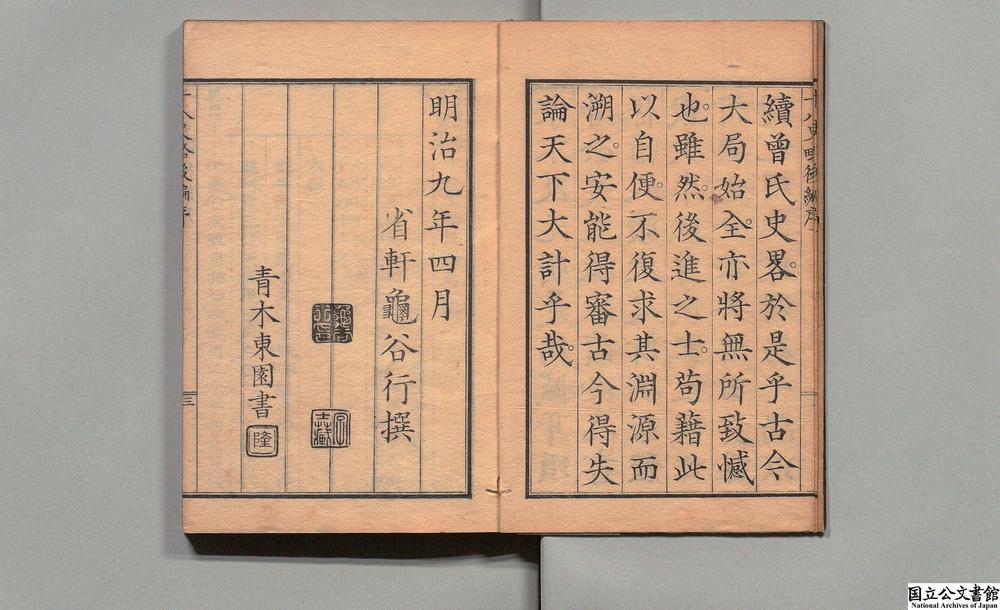 續曾氏史畧。於是乎古今
大局始全。亦將無所致憾
也。雖然。後進之士。苟藉此
以自便。不復求其淵源而
溯之。安能得審古今得失
論天下大計乎哉。
明治九年四月
省軒龜谷行撰
青木東園書
隆
三
十八史略後編序
国立公文書館
National Archives of Japan